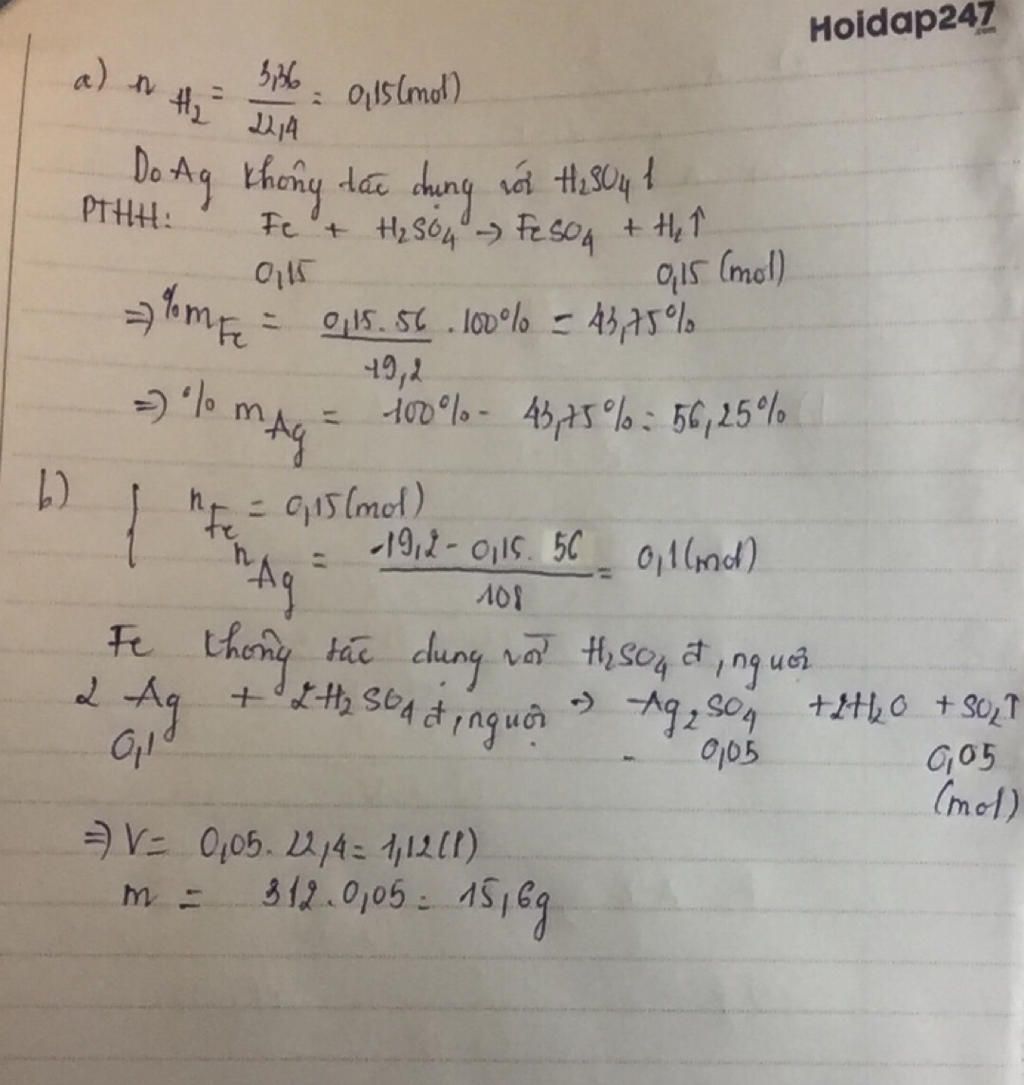 Hoidap247
.com
a) n H₂ = 3,36 / 22,4 = 0,15(mol)
Do Ag không tác dụng với H₂SO₄ l
PTHH: Fe + H₂SO₄ → FeSO₄ + H₂↑
0,15 0,15 (mol)
⇒ %m Fe = 0,15.56 / 19,2 .100% = 43,75%
⇒ % m Ag = 100% - 43,75% = 56,25%
b) { n Fe = 0,15(mol)
n Ag = 19,2 - 0,15. 56 / 108 = 0,1(mol)
Fe không tác dụng với H₂SO₄ đ, nguội
2 Ag + 2H₂SO₄ đ, nguội → Ag₂SO₄ + 2H₂O + SO₂↑
0,1 0,05 0,05
(mol)
⇒ V = 0,05. 22,4 = 1,12(l)
m = 312.0,05 = 15,6g